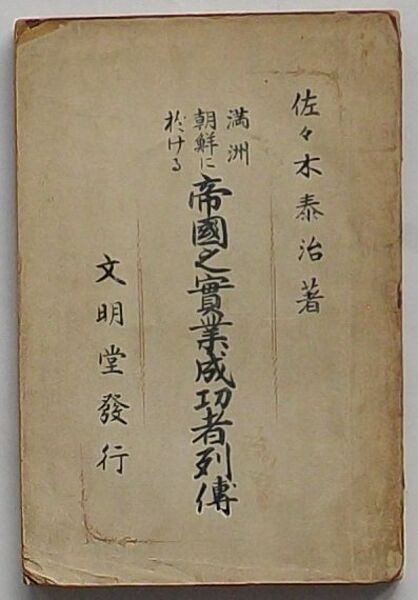 佐々木泰治著
満洲
朝鮮に
於ける
帝國之實業成功者列傳
文明堂發行